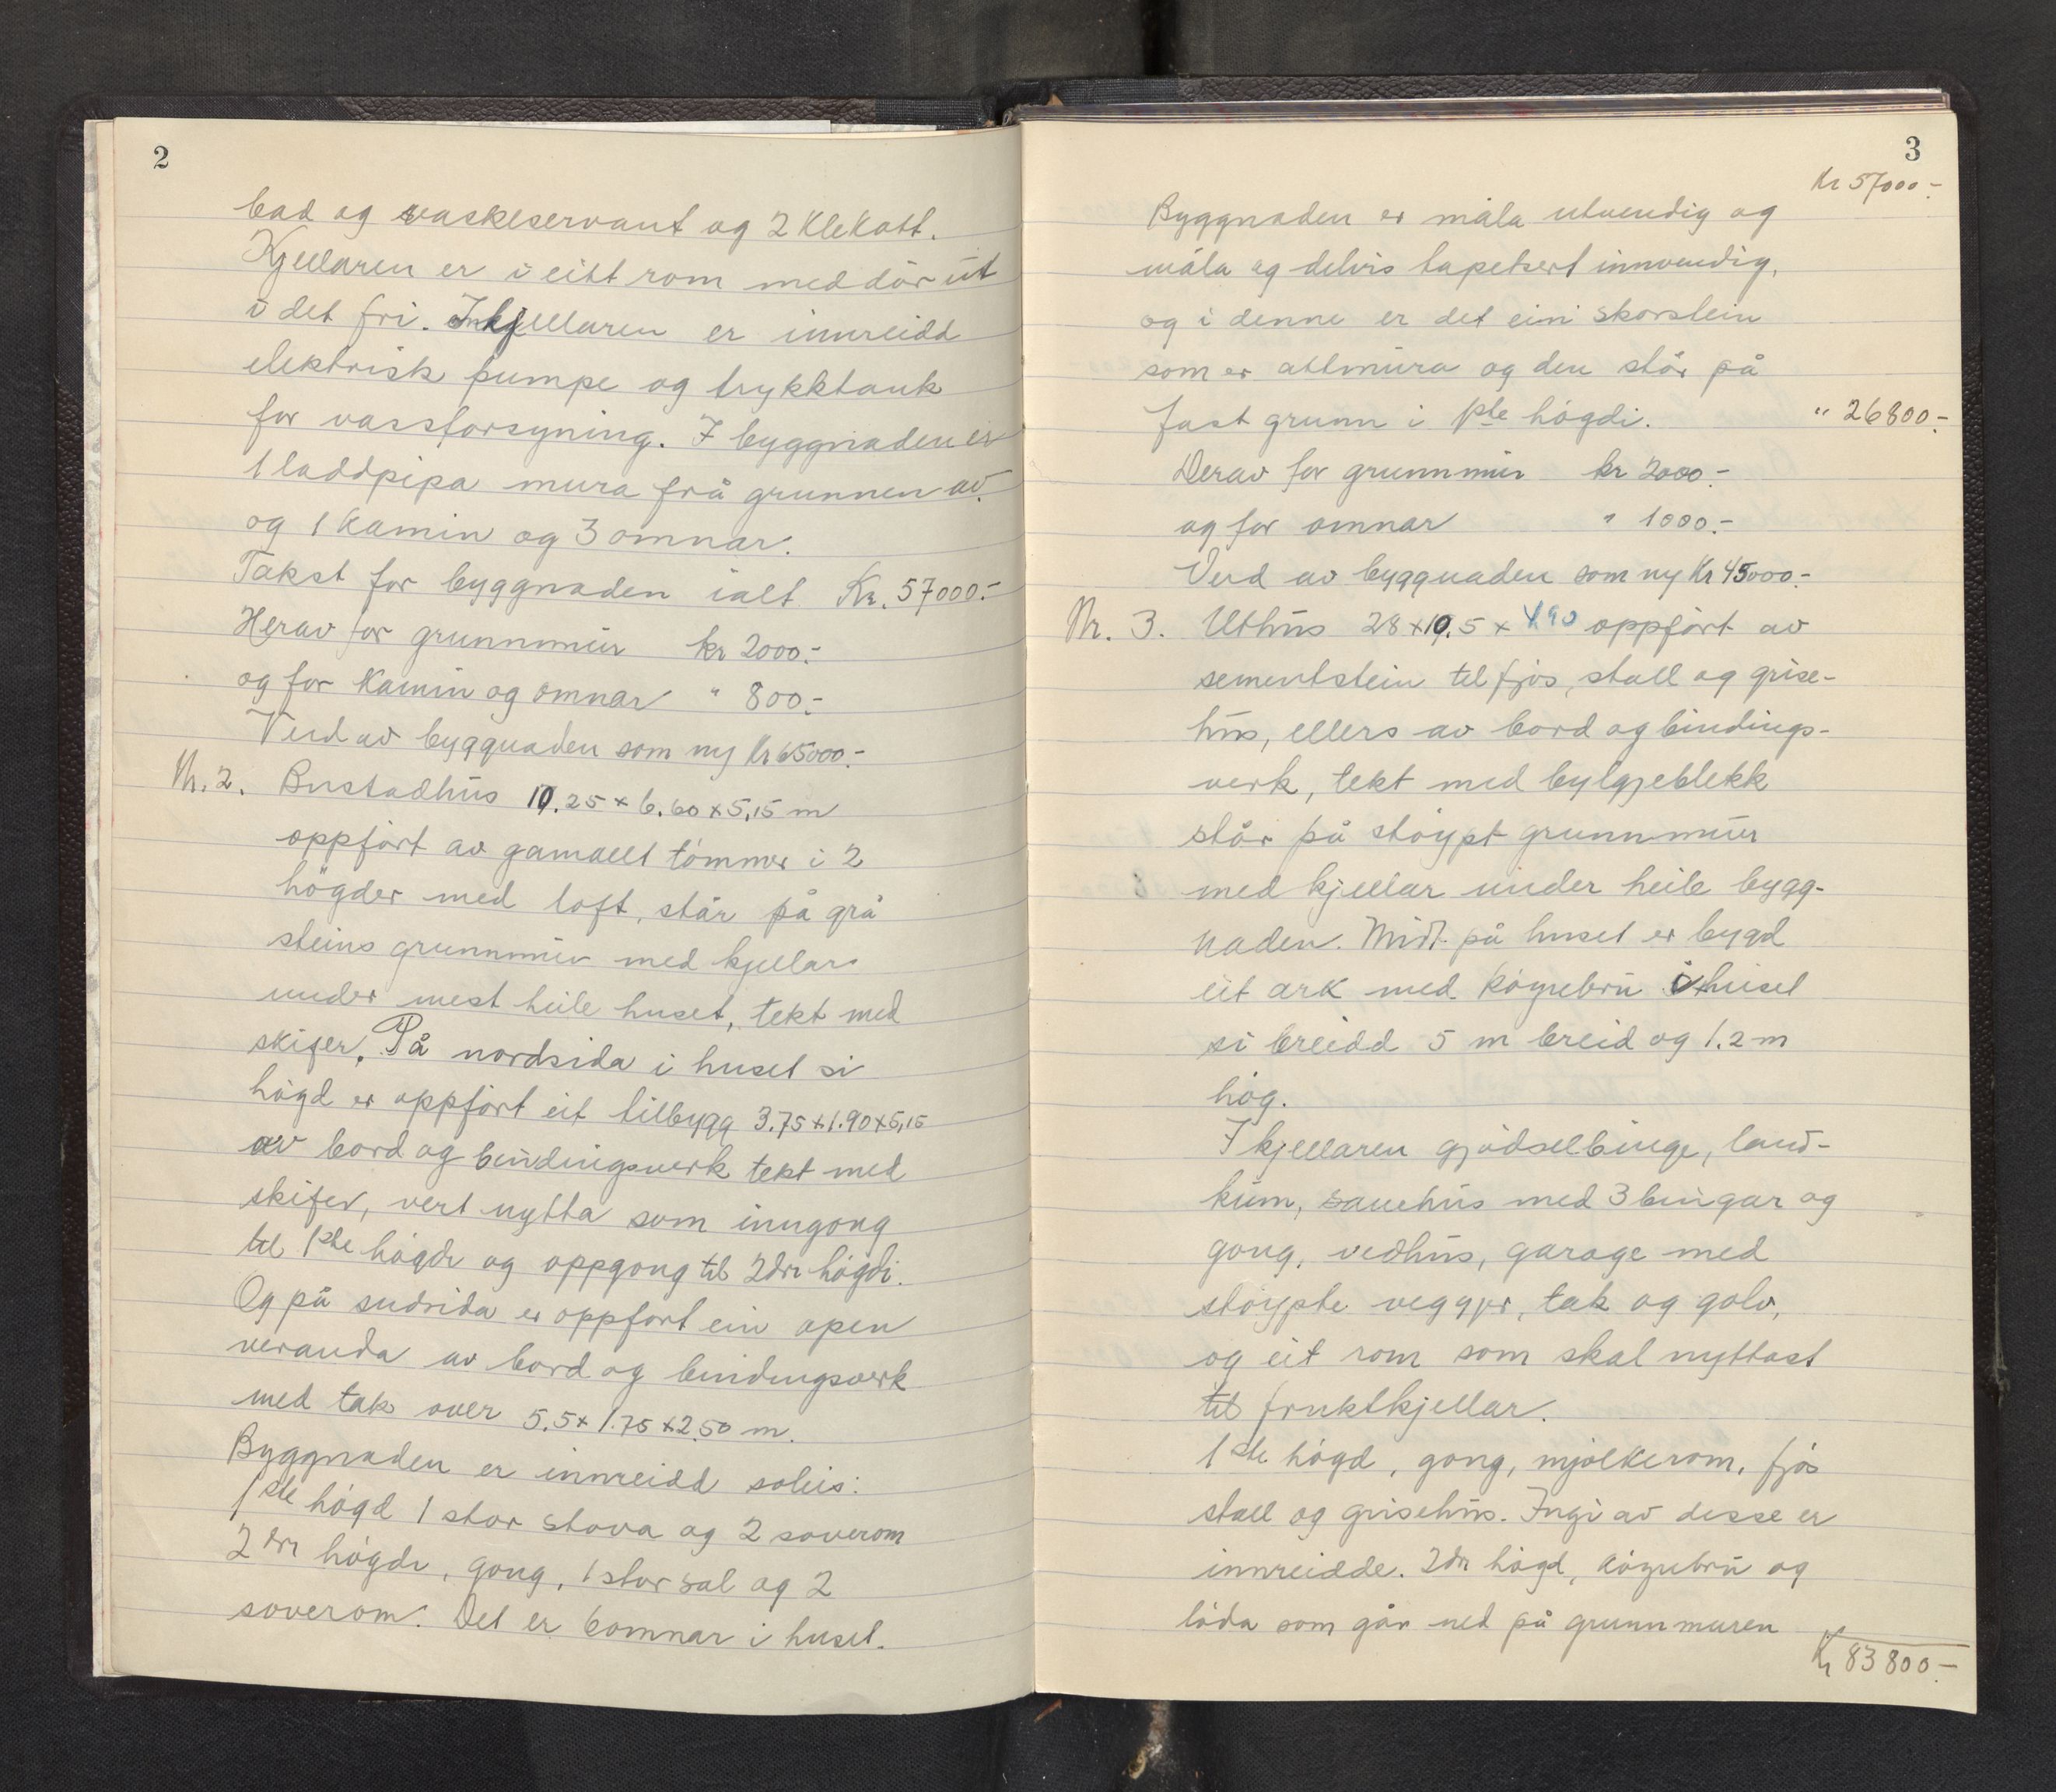 2
bad og vaskeservant og 2 Klekott.
Kjellaren er i eitt rom med dør ut
i det fri. I kjellaren er innreidd
elektrisk pumpe og trykktank
for vassforsyning. I byggnaden er
1 laddpipa mura frå grunnen av.
og 1 Kamin og 3 omnar.
Takst for byggnaden ialt Kr. 57000.-
Herav for grunnmur kr 2000.-
og for Kamin og omnar " 800.-
Verd av byggnaden som ny Kr 65000.-
Nr. 2. Bustadhus 10.25 x 6.60 x 5,15 m
oppført av gamallt tømmer i 2
høgder med loft, står på grå
steins grunnmur med kjellar
under mest heile huset, tekt med
skifer. På nordsida i huset si
høgd er oppført eit tilbygg 3.75 x 1.90 x 5,15
av bord og bindingsverk tekt med
skifer, vert nytta som inngong
til 1ste høgdi og oppgong til 2dre høgdi.
Og på sudsida er oppført ein open
veranda av bord og bindingsverk
med tak over 5.5 x 1.75 x 2.50 m.
Byggnaden er innreidd soleis:
1ste høgd 1 stor stova og 2 soverom
2dre høgdi, gong, 1 stor sal og 2
soverom. Det er 6 omnar i huset.
3
Kr 57000.-
Byggnaden er måla utvendig og
måla og delvis tapetsert innvendig,
og i denne er det ein skorstein
som er attmura og den står på
fast grunn i 1ste høgdi. " 26800.-
Derav for grunnmur kr 2000.-
og for omnar " 1000.-
Verd av byggnaden som ny Kr 45000.-
Nr. 3. Uthus 28 x 10.5 x 4.90 oppført av
sementstein til fjøs, stall og grise-
hus, ellers av bord og bindings-
verk, tekt med bylgjeblekk
står på støypt grunnmur
med kjellar under heile bygg-
naden. Midt på huset er bygd
eit ark med køyrebru i huset
si breidd 5 m breid og 1.2 m
høg.
I kjellaren gjødselbinge, land-
kum, sauehus med 3 bingar og
gong, vedhus, garage med
støypte veggjer, tak og golv,
og eit rom som skal nyttast
til fruktkjellar.
1ste høgd, gong, mjølkerom, fjøs
stall og grisehus. Ingi av desse er
innreidde. 2dre høgd, køyrebru og
løda som går ned på grunnmuren
Kr 83800.-